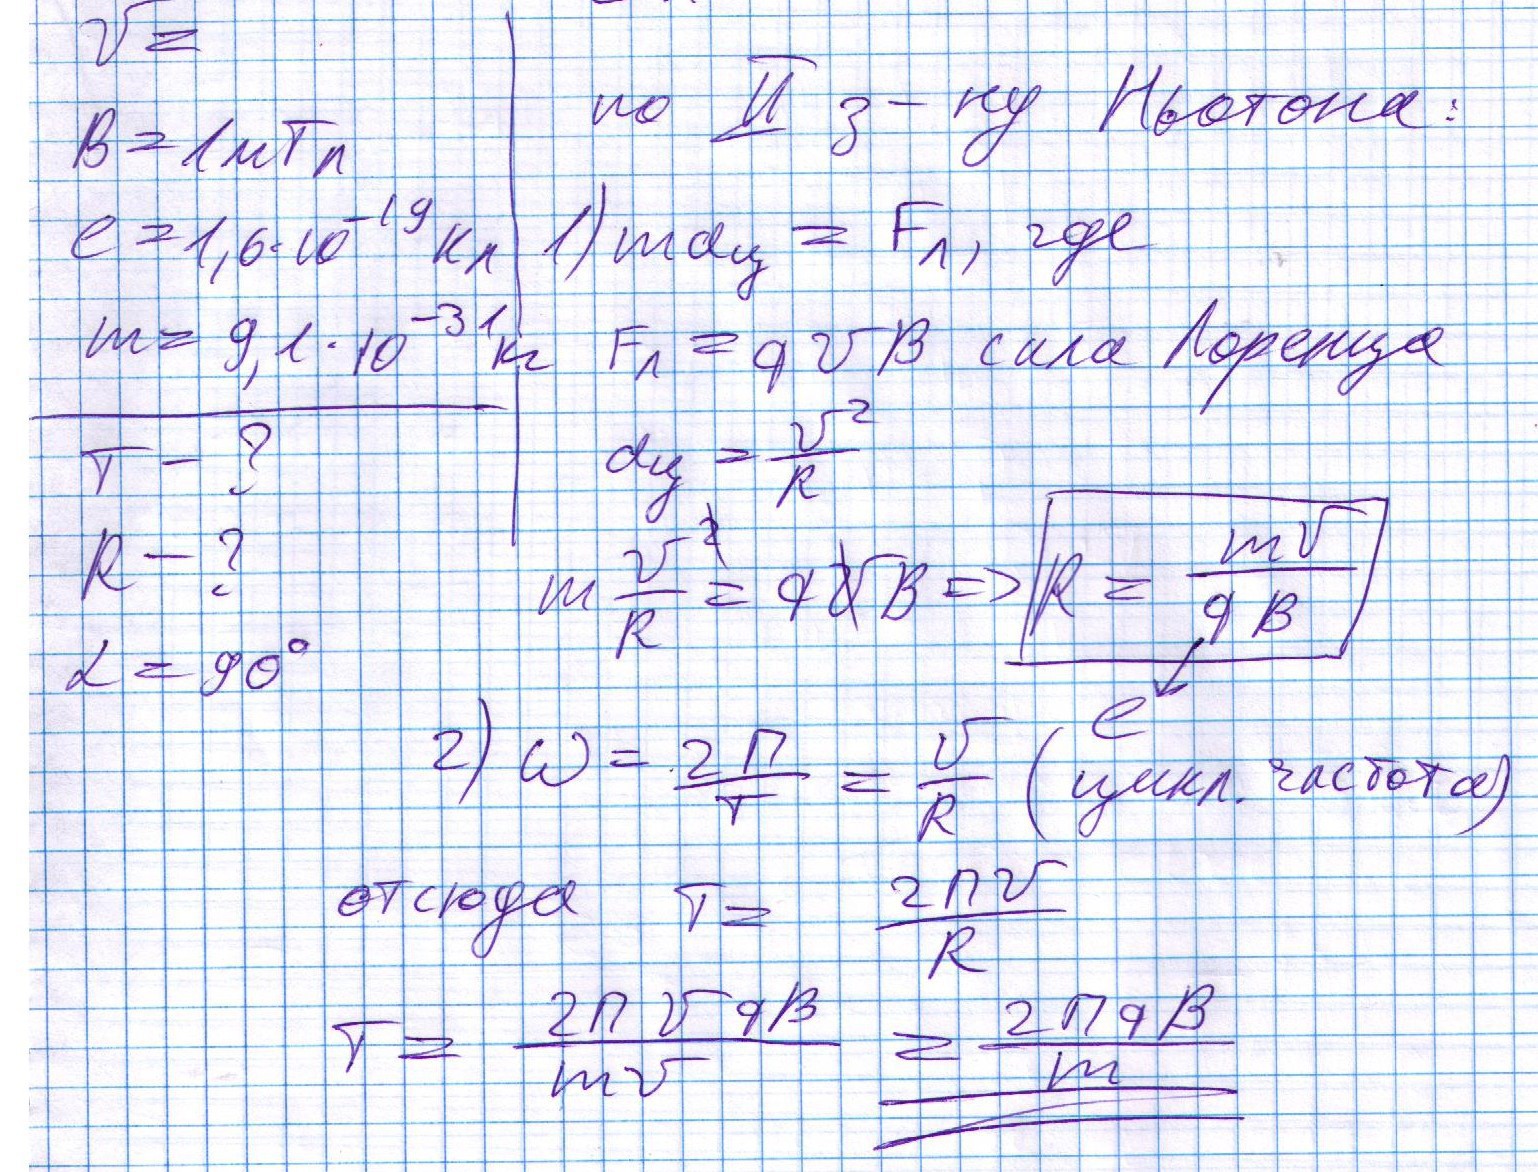 v =
B = 1мТл
e = 1,6·10⁻¹⁹ Кл
m = 9,1·10⁻³¹ кг
T - ?
R - ?
α = 90°
по II з-ну Ньютона:
1) maц = Fл, где
Fл = qvB сила Лоренца
aц = v²/R
m v²/R = qvB => R = mv/qB
e
2) ω = 2П/T = v/R (цикл. частота)
отсюда T = 2Пv/R
T = 2ПvqB/mv = 2ПqB/m